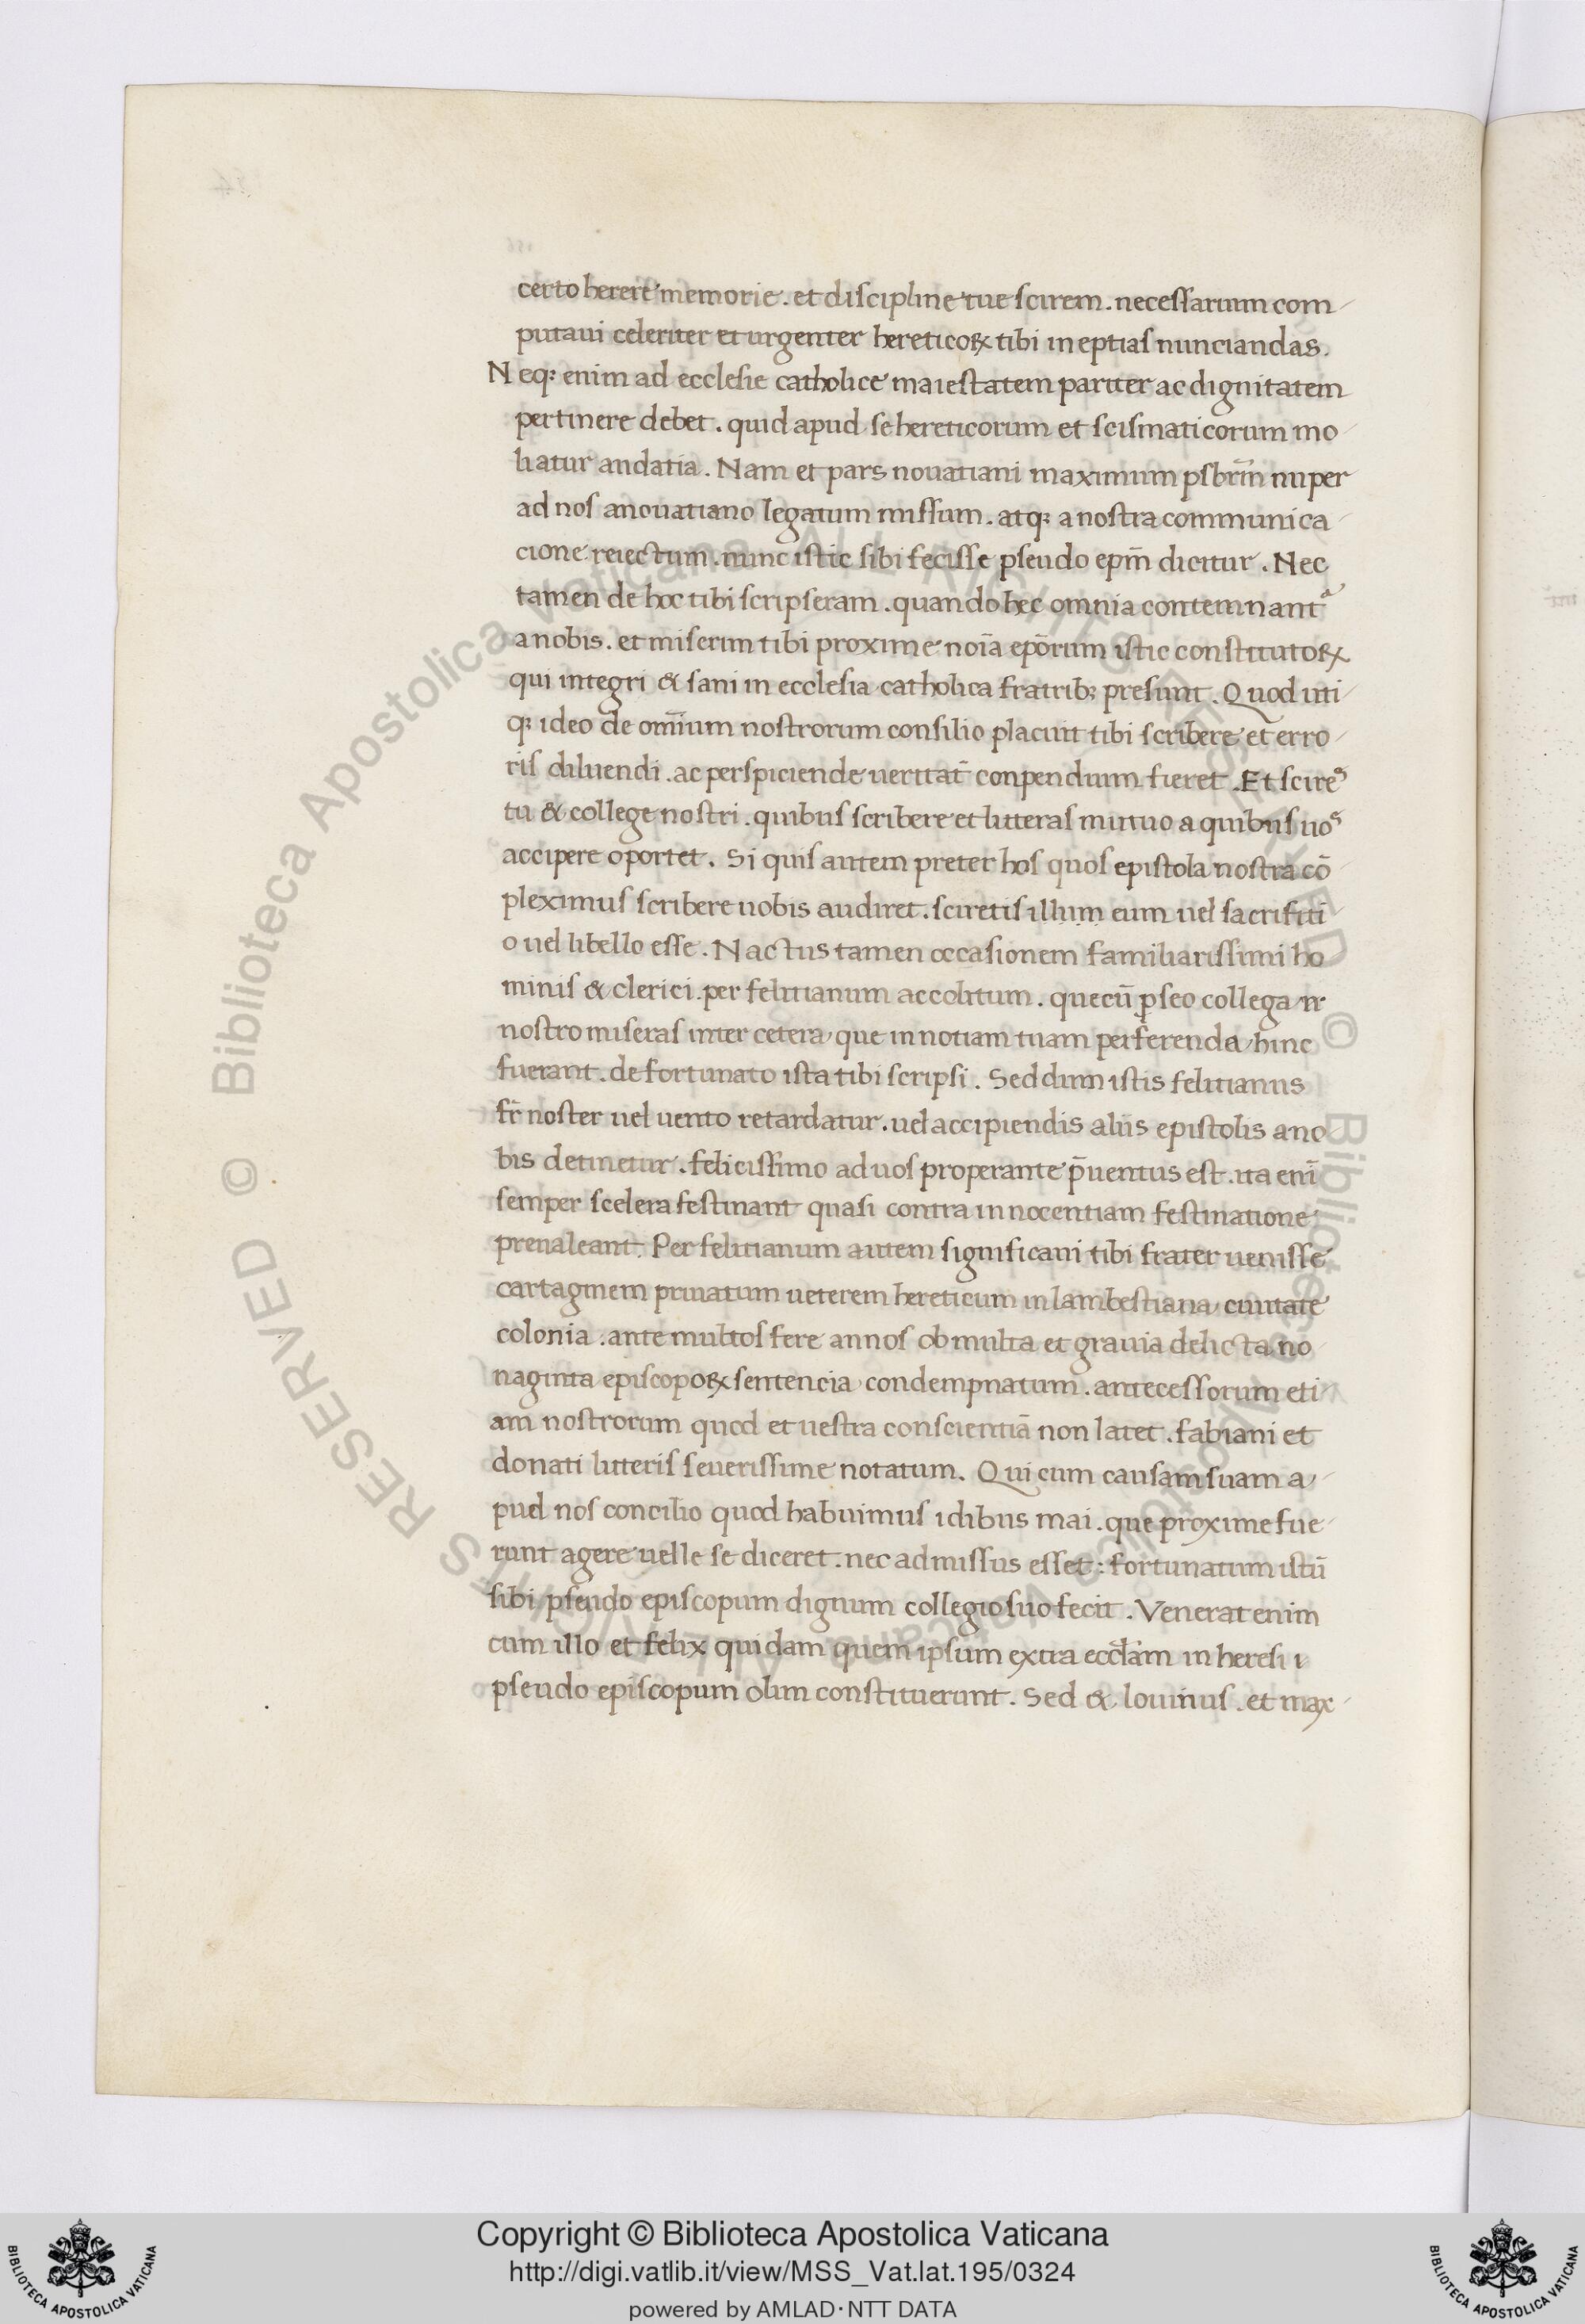 certo herere memorie. et discipline tue scirem. necessarium com
putaui celeriter et urgenter hereticoꝝ tibi ineptias nunciandas.
Neqꝫ enim ad ecclesie catholice maiestatem pariter ac dignitatem
pertinere debet. quid apud se hereticorum et scismaticorum mo
liatur audatia. Nam et pars nouatiani maximum psbrm̄ nuper
ad nos anouatiano legatum missum. atqꝫ a nostra communica
cione reiectum. nunc istic sibi fecisse pseudo epm̄ dicitur. Nec
tamen de hoc tibi scripseram. quando hec omnia contemnant᷑
anobis. et miserim tibi proxime noīa epōrum istic constitutoꝝ
qui integri & sani in ecclesia catholica fratribꝫ presunt. Quod uti
qꝫ ideo de omīum nostrorum consilio placuit tibi scribere et erro
ris diluendi. ac perspiciende ueritat̄ conpendium fieret. Et scires
tu & college nostri. quibus scribere et litteras mutuo a quibus uos
accipere oportet. Si quis autem preter hos quos epistola nostra cō
pleximus scribere uobis audiret. sciretis illum eum uel sacrifiti
o uel libello esse. Nactus tamen occasionem familiarissimi ho
minis & clerici. per felitianum accolitum. quecū ꝑseo collega n
nostro miseras inter cetera que in notiam tuam perferenda hinc
fuerant. de fortunato ista tibi scripsi. Sed dum istis felitianus
fr̄ noster uel uento retardatur. uel accipiendis aliis epistolis ano
bis detinetur. felicissimo ad uos properante p̄uentus est. ita enī
semper scelera festinant quasi contra innocentiam festinatione
preualeant. Per felitianum autem significaui tibi frater uenisse
cartaginem priuatum ueterem hereticum in lambestiana ciuitate
colonia. ante multos fere annos ob multa et grauia delicta no
naginta episcopoꝝ sentencia condempnatum. antecessorum eti
am nostrorum quod et uestra conscientiā non latet. fabiani et
donati litteris seuerissime notatum. Qui cum causam suam a
pud nos concilio quod habuimus idibus mai. que proxime fue
runt agere uelle se diceret. nec admissus esset: fortunatum istū
sibi pseudo episcopum dignum collegio suo fecit. Venerat enim
cum illo et felix quidam quem ipsum extra eccl̄am in heresi i
pseudo episcopum olim constituerunt. Sed & Iouinus. et max
Copyright © Biblioteca Apostolica Vaticana
http://digi.vatlib.it/view/MSS_Vat.lat.195/0324
powered by AMLAD·NTT DATA